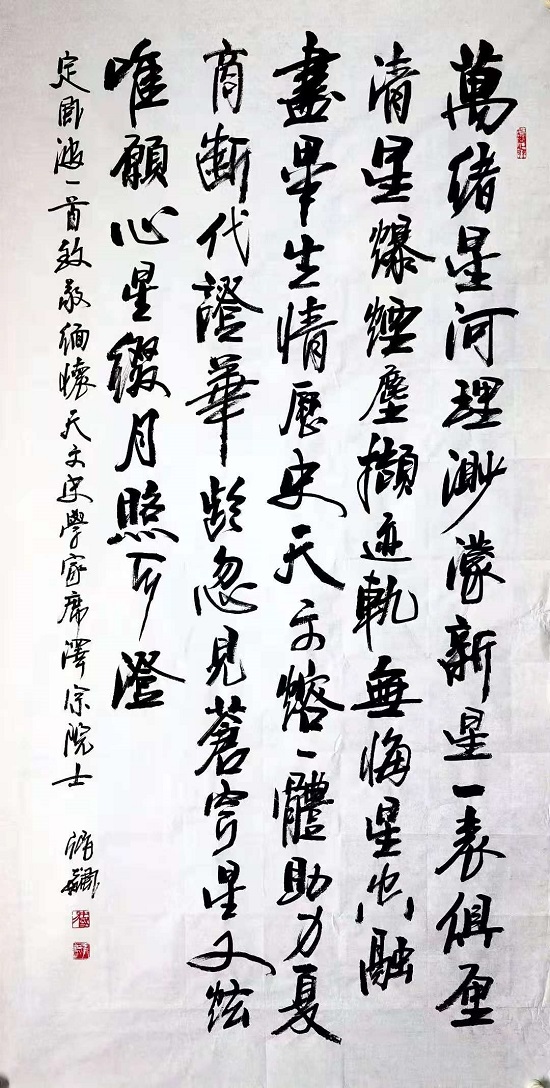 萬緒星河理渺濛新星一表俱厘
清星爆煙塵擷迹軌無悔星空融
盡畢生情歷史天文熔一體助力夏
商斷代證華齡忽見蒼穹星又炫
唯願心星綴月照澄
定風波一首致敬緬懷天文史學家席澤宗院士